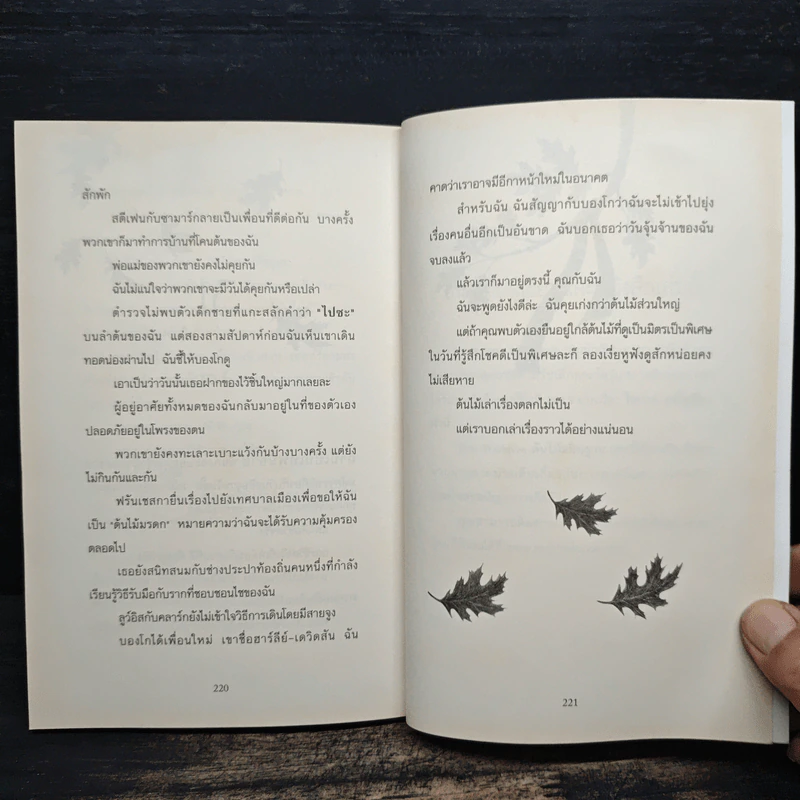 สักพัก
สตีเฟนกับซามาร์กลายเป็นเพื่อนที่ดีต่อกัน บางครั้ง
พวกเขาก็มาทำการบ้านที่โคนต้นของฉัน
พ่อแม่ของพวกเขายังคงไม่คุยกัน
ฉันไม่แน่ใจว่าพวกเขาจะมีวันได้คุยกันหรือเปล่า
ตำรวจไม่พบตัวเด็กชายที่แกะสลักคำว่า "ไปซะ"
บนลำต้นของฉัน แต่สองสามสัปดาห์ก่อนฉันเห็นเขาเดิน
ทอดน่องผ่านไป ฉันชี้ให้บองโกดู
เอาเป็นว่าวันนั้นเธอฝากของไว้ชิ้นใหญ่มากเลยละ
ผู้อยู่อาศัยทั้งหมดของฉันกลับมาอยู่ในที่ของตัวเอง
ปลอดภัยอยู่ในโพรงของตน
พวกเขายังคงทะเลาะเบาะแว้งกันบ้างบางครั้ง แต่ยัง
ไม่กินกันและกัน
ฟรันเชสกายื่นเรื่องไปยังเทศบาลเมืองเพื่อขอให้ฉัน
เป็น "ต้นไม้มรดก" หมายความว่าฉันจะได้รับความคุ้มครอง
ตลอดไป
เธอยังสนิทสนมกับช่างประปาท้องถิ่นคนหนึ่งที่กำลัง
เรียนรู้วิธีรับมือกับรากที่ชอบชอนไชของฉัน
ลูว์อิสกับคลาร์กยังไม่เข้าใจวิธีการเดินโดยมีสายจูง
บองโกได้เพื่อนใหม่ เขาชื่อฮาร์ลีย์-เดวิดสัน ฉัน
220
คาดว่าเราอาจมีอีกาหน้าใหม่ในอนาคต
สำหรับฉัน ฉันสัญญากับบองโกว่าฉันจะไม่เข้าไปยุ่ง
เรื่องคนอื่นอีกเป็นอันขาด ฉันบอกเธอว่าวันจุ้นจ้านของฉัน
จบลงแล้ว
แล้วเราก็มาอยู่ตรงนี้ คุณกับฉัน
ฉันจะพูดยังไงดีล่ะ ฉันคุยเก่งกว่าต้นไม้ส่วนใหญ่
แต่ถ้าคุณพบตัวเองยืนอยู่ใกล้ต้นไม้ที่ดูเป็นมิตรเป็นพิเศษ
ในวันที่รู้สึกโชคดีเป็นพิเศษละก็ ลองเงี่ยหูฟังดูสักหน่อยคง
ไม่เสียหาย
ต้นไม้เล่าเรื่องตลกไม่เป็น
แต่เราบอกเล่าเรื่องราวได้อย่างแน่นอน
221